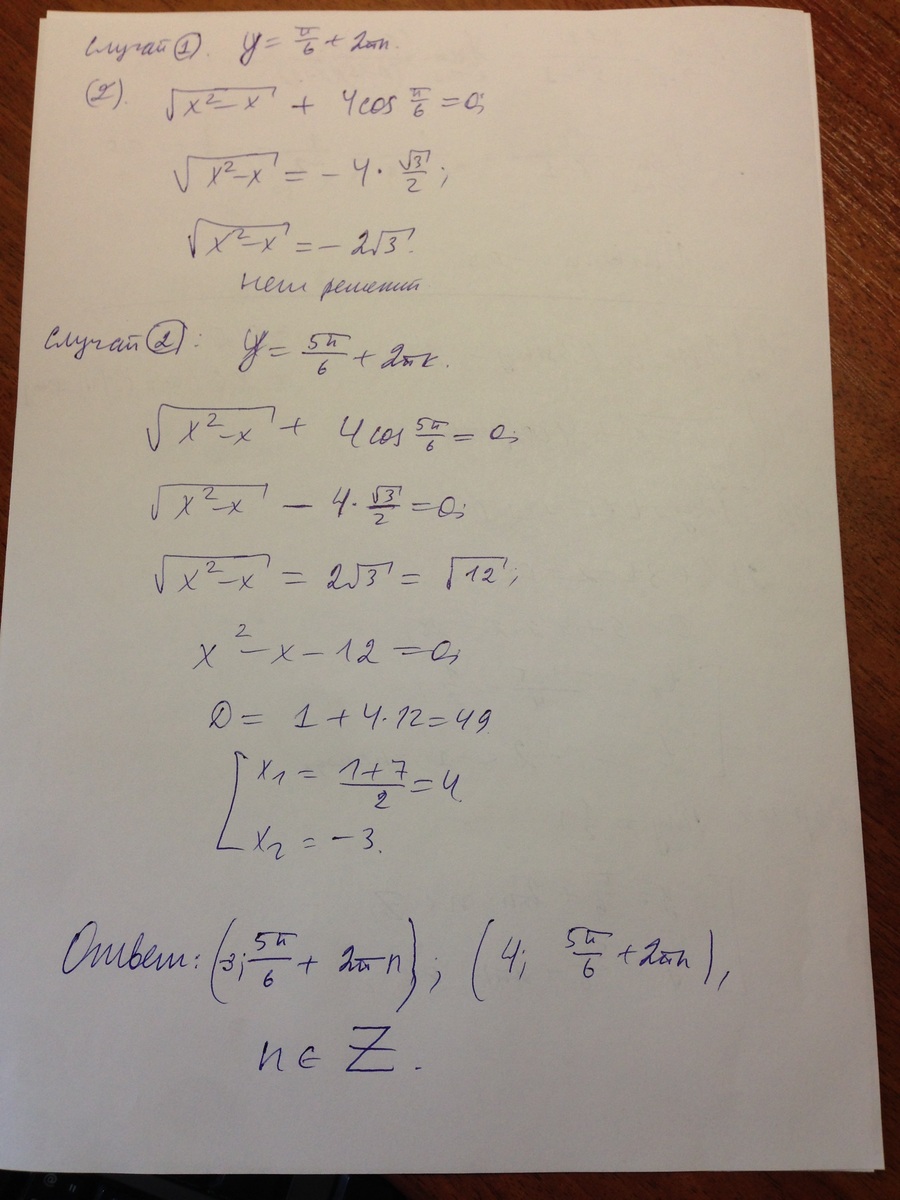 Случай ①. y = π/6 + 2πn.
(2). √(x² - x) + 4cos π/6 = 0;
√(x² - x) = - 4 · √3/2;
√(x² - x) = - 2√3.
нет решений
Случай ②: y = 5π/6 + 2πk.
√(x² - x) + 4cos 5π/6 = 0;
√(x² - x) - 4 · √3/2 = 0;
√(x² - x) = 2√3 = √12;
x² - x - 12 = 0;
D = 1 + 4·12 = 49
[ x₁ = (1+7)/2 = 4
x₂ = -3.
Ответ: (-3; 5π/6 + 2πn); (4; 5π/6 + 2πn),
n ∈ Z.